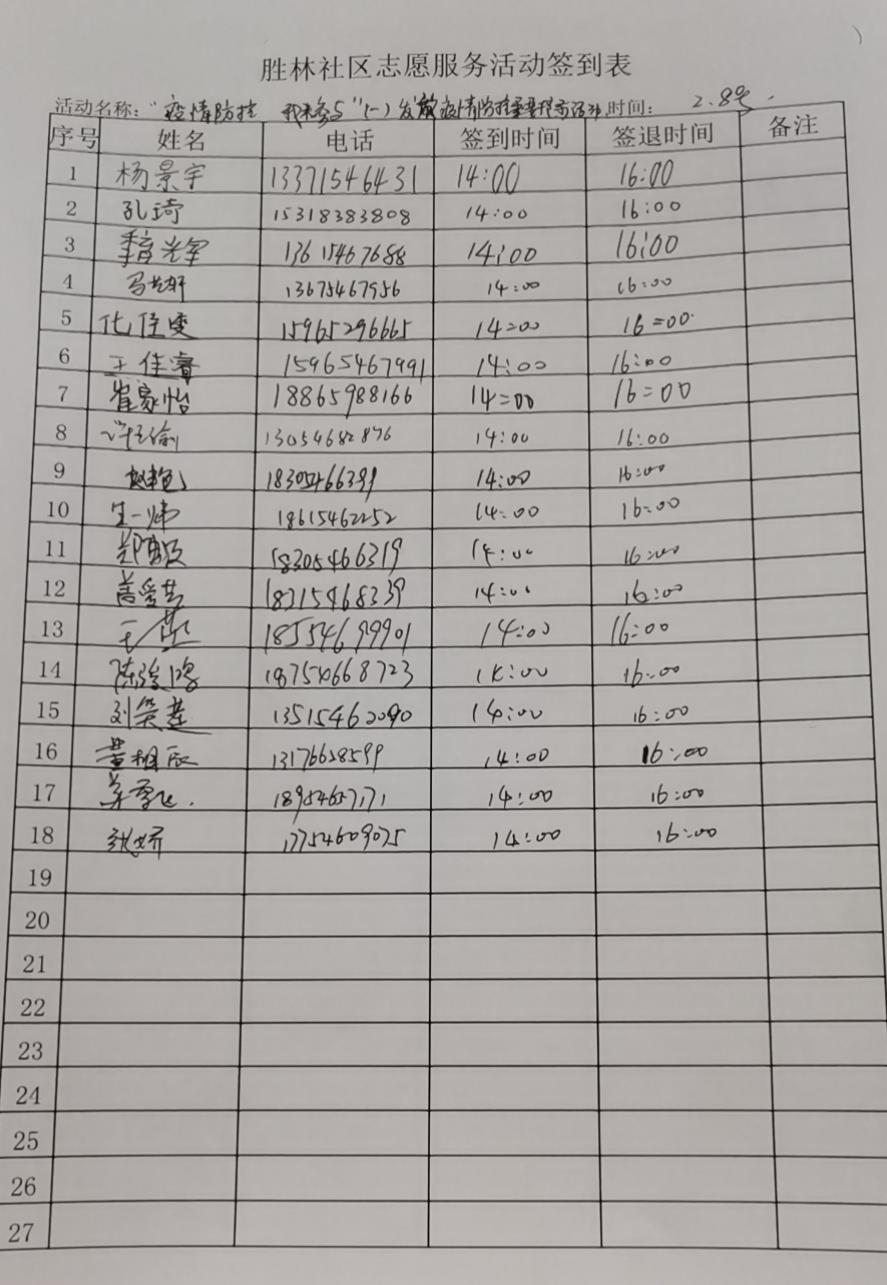 胜林社区志愿服务活动签到表
活动名称："疫情防控 我来参与"(一)发放疫情防控 时间：2.8号.
序号 姓名 电话 签到时间 签退时间 备注
1 杨景宇 13371546431 14:00 16:00
2 孔琦 15318383808 14:00 16:00
3 光军 13615467688 14:00 16:00
4 马艺轩 13675467956 14:00 16:00
5 化佳雯 15965296665 14=00 16=00
6 王佳睿 15965467991 14:00 16:00
7 崔家怡 18865988166 14=00 16=00
8 13054682876 14:00 16:00
9 赵 18305466399 14:00 16:00
10 生一炜 18615462252 14:00 16:00
11 郑 18305466319 14:00 16:00
12 14:00 16:00
13 王燕 18554699901 14:00 16:00
14 陈 18754668723 14:00 16:00
15 刘笑莲 13515462090 14:00 16:00
16 黄相辰 13176658599 14:00 16:00
17 18954657171 14:00 16:00
18 张娇 17754609075 14:00 16:00
19
20
21
22
23
24
25
26
27